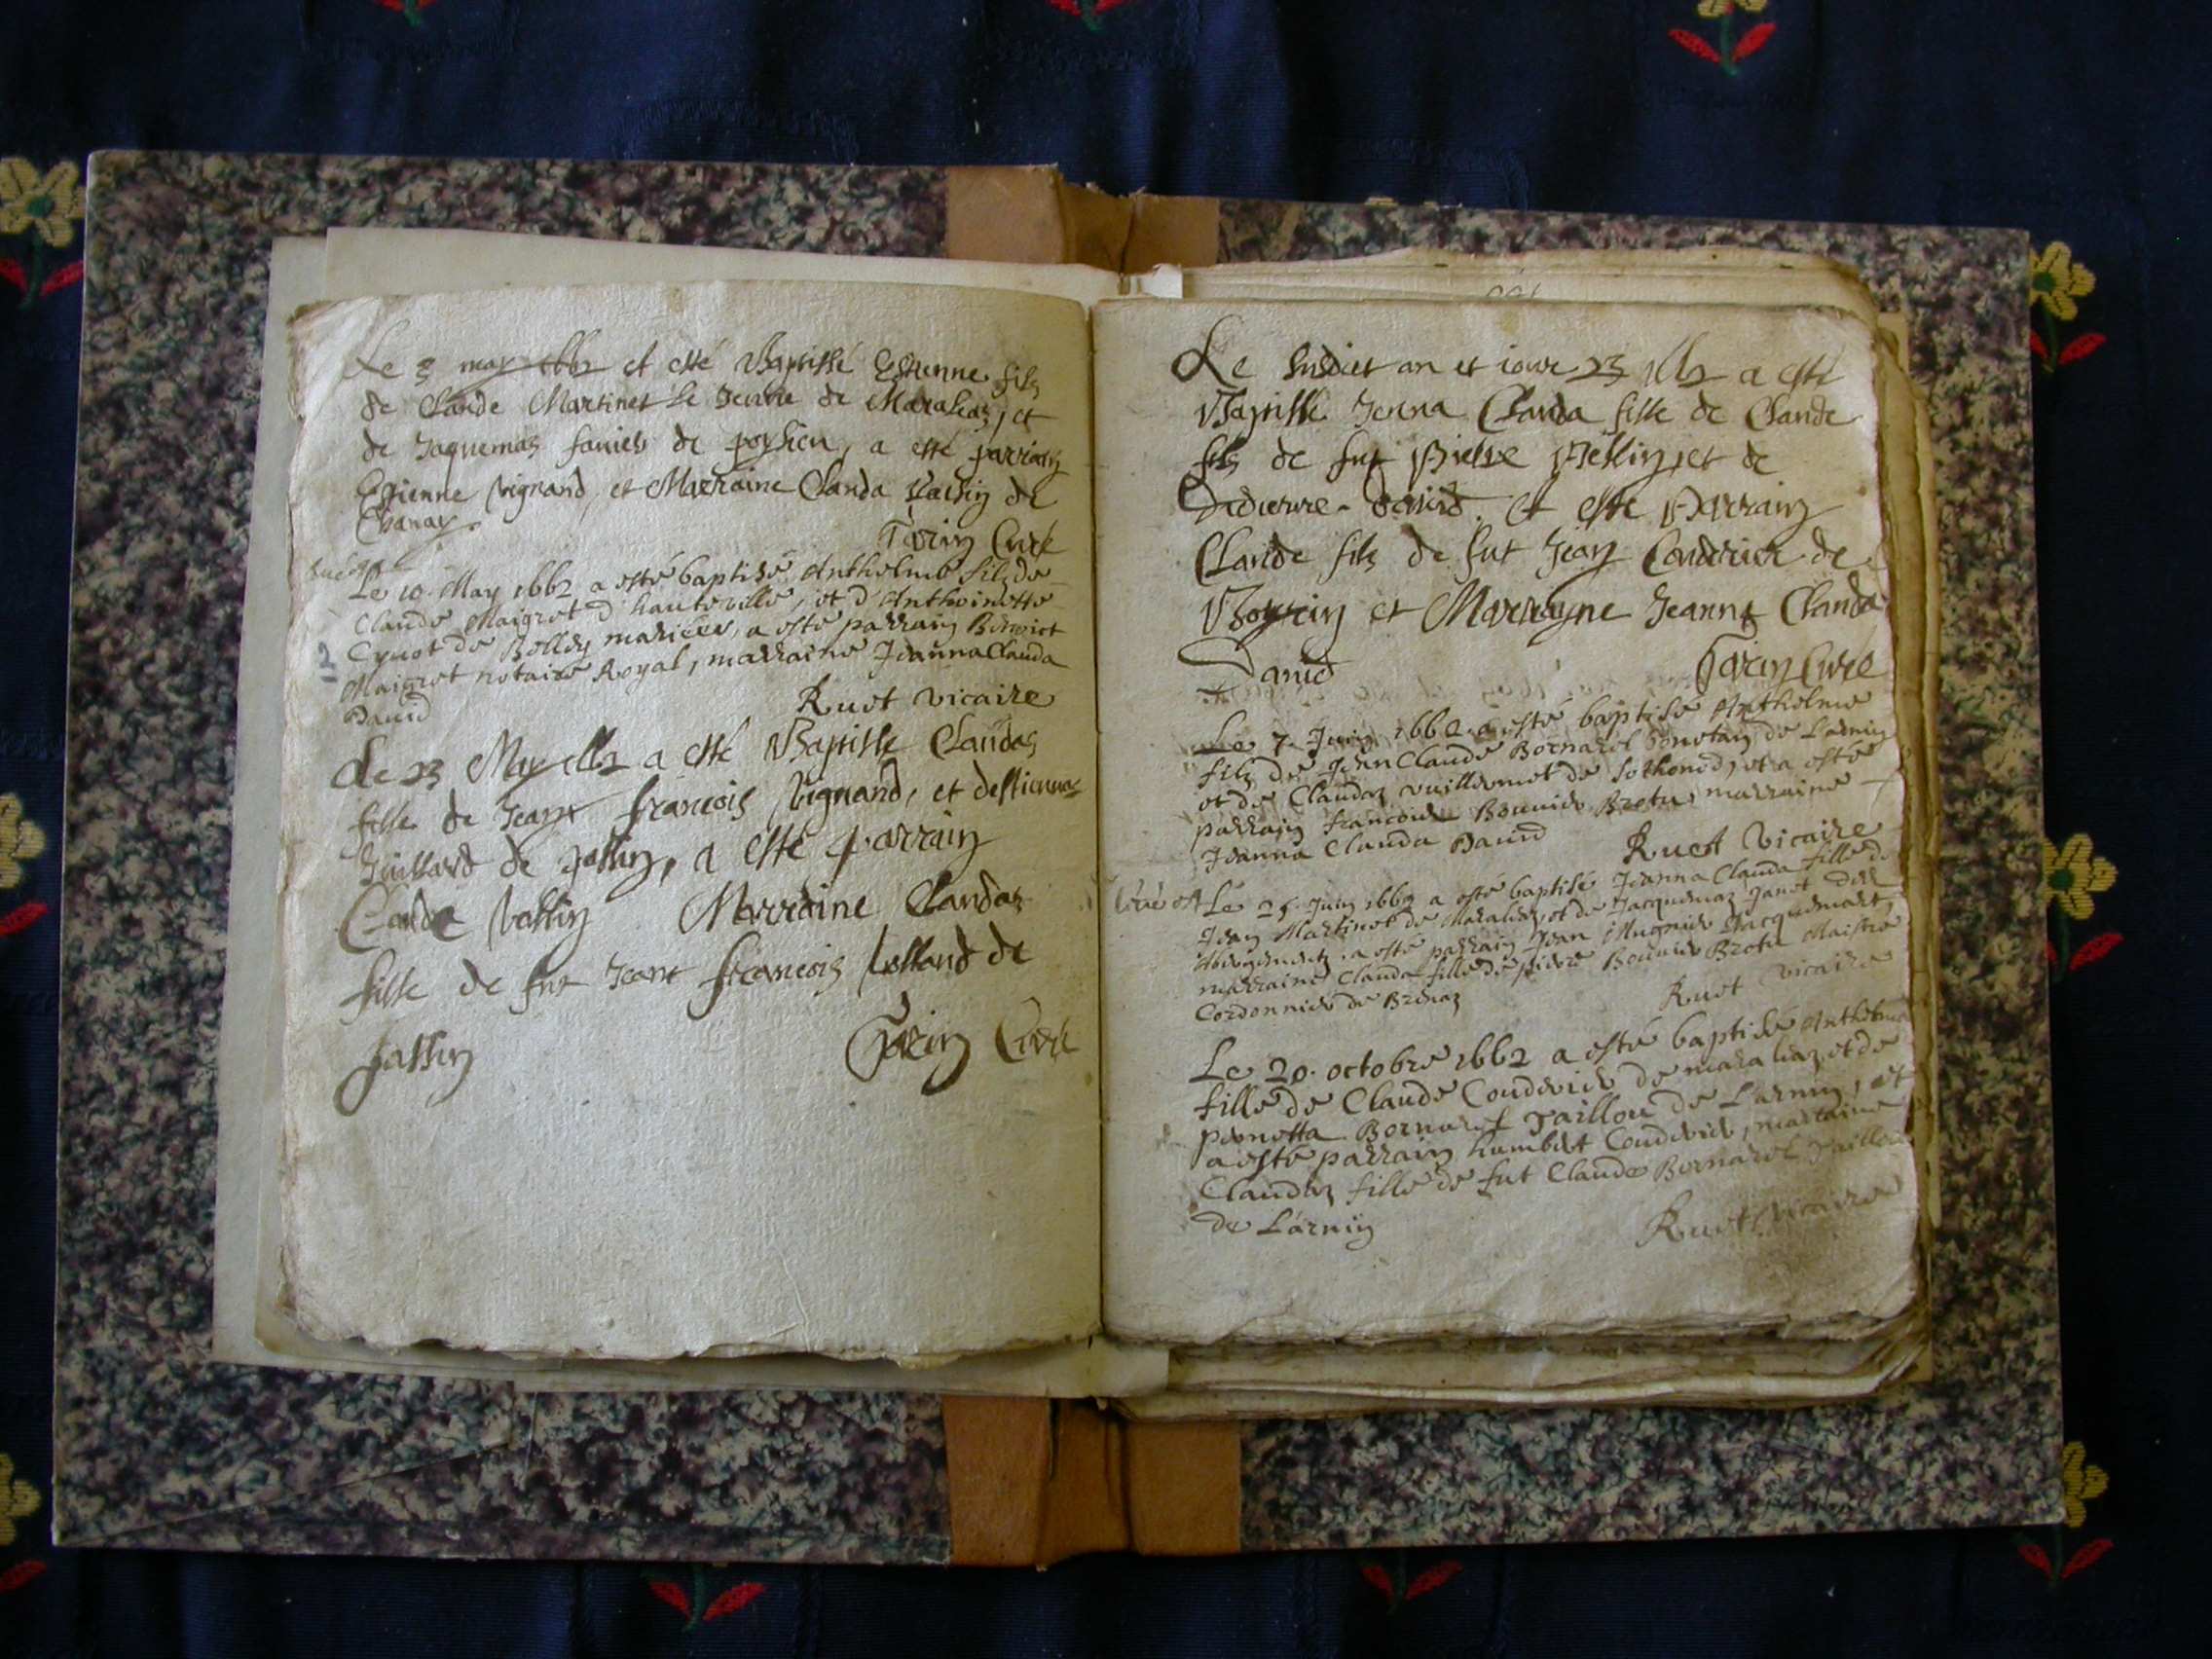 Le 3 may 1662 et esté Baptisé Estienne filz
de Claude Martinet le Jeune de Maraliaz, et
de Jaquemaz de poysieu, a esté parrain
Estienne Vignand, et Marraine Clauda de
Chanay.
Curé
Le 10. May 1662 a esté baptisé Anthelme filz de
Claude Maigret d'hauteville, et d'Anthoinette
Cynot de Belley mariées, a esté parrain Benoict
Maigret notaire Royal, marraine Jeanna Clauda
2
David
Ruet vicaire
Le 23 May 1662 a esté Baptisé Claudaz
fille de Jean françois Vignand, et destienna
de a esté parrain
Claude Marraine Claudaz
fille de fut Jean francois de
Curé
Le susdict an et iour 23 1662 a esté
Baptisé Jenna Clauda fille de Claude
filz de fut Pierre et de
David. et esté Parrain
Claude filz de fut Jean Coudurier de
et Marrayne Jeanne Clauda
David
Curé
Le 7 Juin 1662 a esté baptisé Anthelme
filz de Jean Claude Bornarel de Larnin
et de Claudaz vuillermot de Sothonod, et a esté
parrain francois Bouvier Bretu, marraine
Jeanna Clauda David
Ruet vicaire
Le Juin 1662 a esté baptisé Jeanna Clauda fille de
Jean Martinet de Maraliaz, et de Jacquemaz Janet
a esté parrain Jean Mugnier Jacquemart,
marraine Clauda fille de pierre Bouvier Bretu Maistre
Cordonnier de Brenaz
Ruet vicaire
Le 20. octobre 1662 a esté baptisé Anthelma
fille de Claude Coudurier de maraliaz, et de
pernetta Bornarel Taillou de Larnin, et
a esté parrain humbert Coudurier, marraine
Claudaz fille de fut Claude Bornarel Taillou
de Larnin
Ruet vicaire